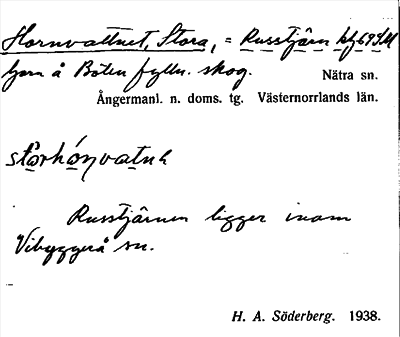 Hornvattnet, Stora, = Russtjärn kf 69 S.M
tjärn å Bölen fylln. skog. Nätra sn.
Ångermanl. n. doms. tg. Västernorrlands län.
Russtjärnen ligger inom
Vibyggerå sn.
H. A. Söderberg. 1938.